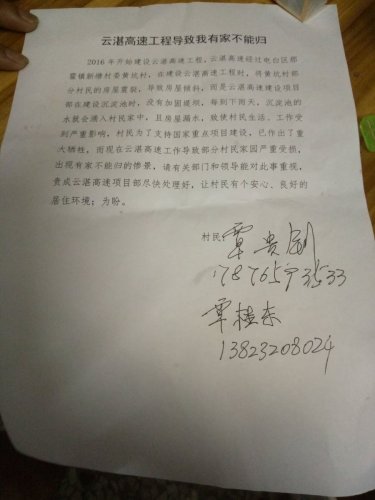 云湛高速工程导致我有家不能归
2016年开始建设云湛高速工程，云湛高速经过电白区那
霍镇新塘村委黄坑村，在建设云湛高速工程时，将黄坑村部
分村民的房屋震裂，导致房屋倾斜，而是云湛高速建设项目
部在建设沉淀池时，没有加固堤坝，每到下雨天，沉淀池的
水就会涌入村民家中，且房屋漏水，致使村民生活、工作受
到严重影响，村民为了支持国家重点项目建设，已作出了重
大牺牲，而现在云湛高速工作导致部分村民家园严重受损，
出现有家不能归的惨景，请有关部门和领导能对此事重视，
责成云湛高速项目部尽快处理好，让村民有个安心、良好的
居住环境；为盼。
村民：覃贵
17876593533
覃桂东
13823208024